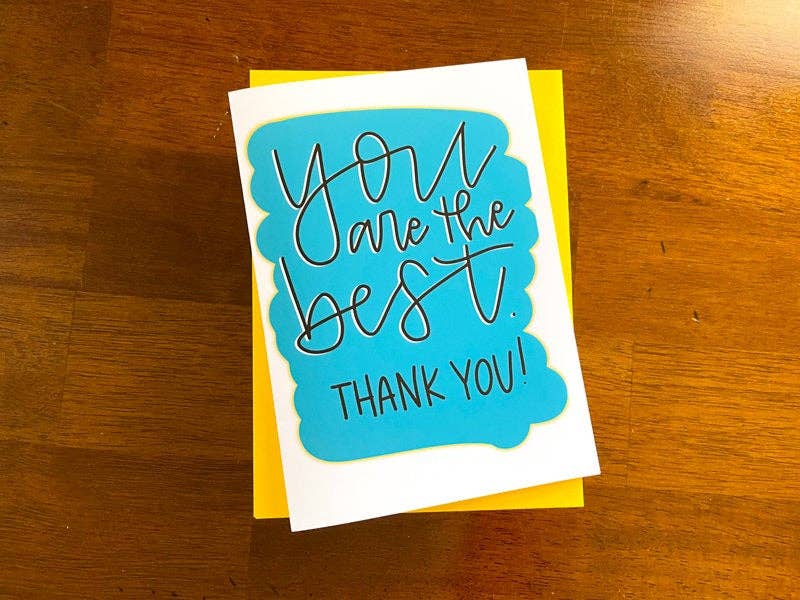 you
are the
best.
THANK YOU!